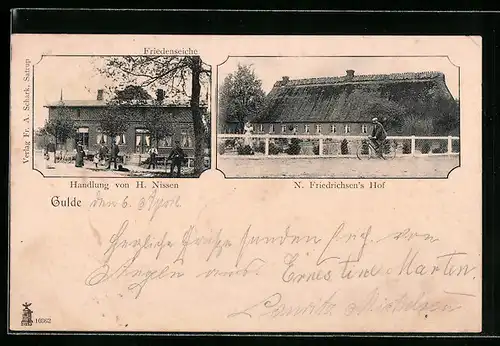 Friedenseiche
Verlag Fr. A. Schark, Satrup
Handlung von H. Nissen
N. Friedrichsen's Hof
Gulde den 6. April
Herzliche Grüsse senden Euch von
Angeln aus Ernestine Marten
10562